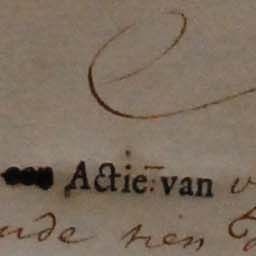 Actie: van
nde tien